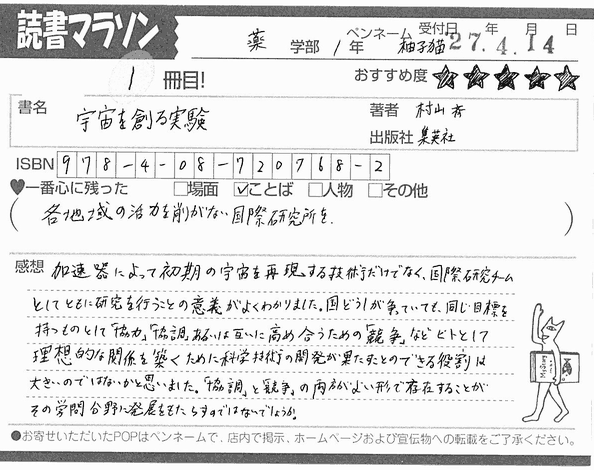 読書マラソン
薬 学部 1年 ペンネーム 柚子猫 受付日 年 月 日 27.4.14
1 冊目! おすすめ度 ★★★★★
書名 宇宙を創る実験 著者 村山斉
出版社 集英社
ISBN 978-4-08-720768-2
♥一番心に残った □場面 ☑ことば □人物 □その他
(各地域の活力を削がない国際研究所を。)
感想 加速器によって初期の宇宙を再現する技術だけでなく、国際研究チーム
としてともに研究を行うことの意義がよくわかりました。国どうしが争っていても、同じ目標を
持つものとして「協力」「協調」、あるいは互いに高め合うための「競争」など ヒトとして
理想的な関係を築くために科学技術の開発が果たすことのできる役割は
大きいのではないかと思いました。「協調」と「競争」の両方がよい形で存在することが
その学問分野に発展をもたらすのではないでしょうか。
●お寄せいただいたPOPはペンネームで、店内で掲示、ホームページおよび宣伝物への転載をご了承ください。